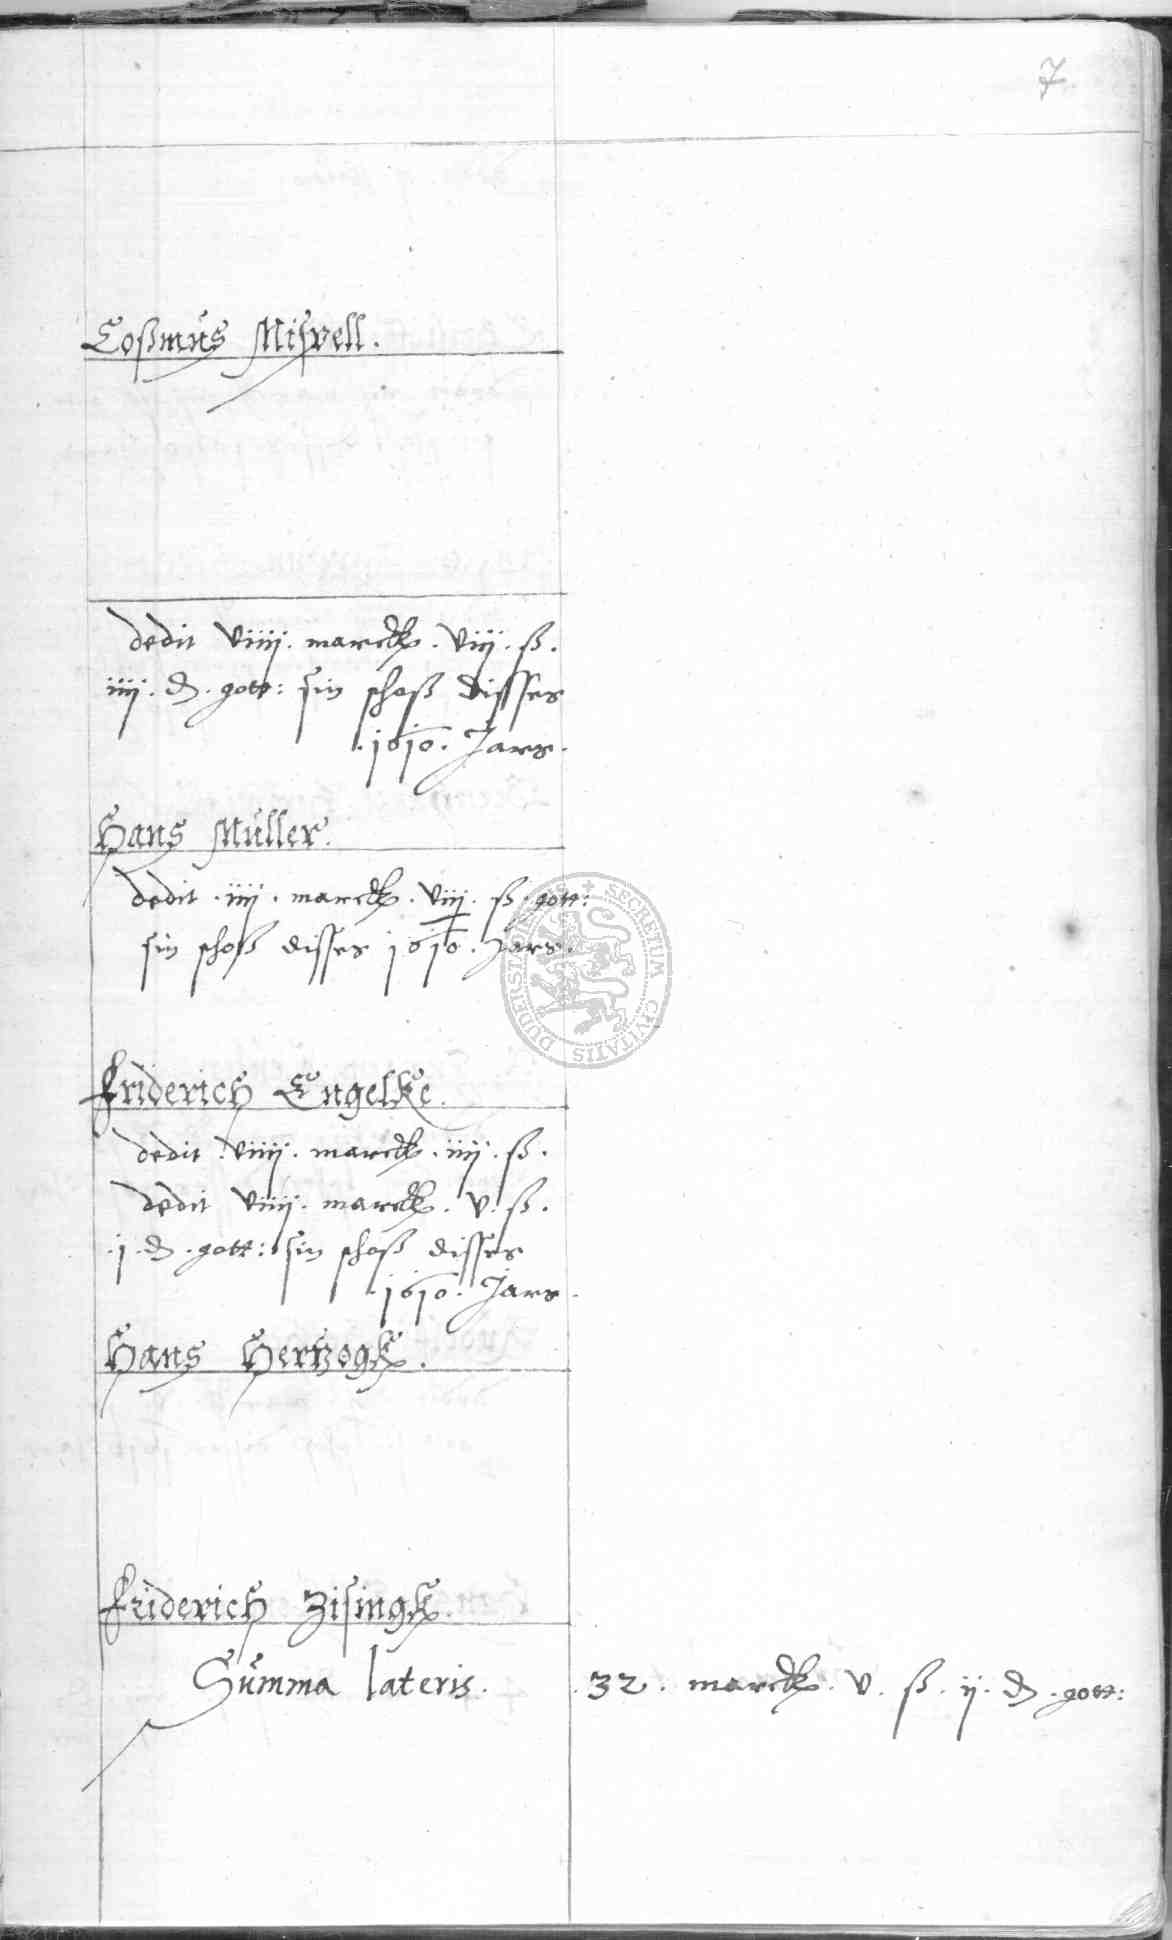 7
Coßmus Misvell.
dedit viiij. marck. viij. ß.
iiij. d. gott: sin schoß disses
.1610. Jars.
Hans Müller.
dedit .iiij. marck. viij. ß. gott:
sin schoß disses 1610. Jars.
Friderich Engelke.
dedit .viiij. marck. iiij. ß.
dedit viiij. marck. v. ß.
.j. d. gott: sin schoß disses
.1610. Jars.
Hans Hertzogk.
Friderich Zisingk.
Summa lateris. .32. marck. v. ß. ij. d. gott:
SECRETUM CIVITATIS DUDERSTADENSIS